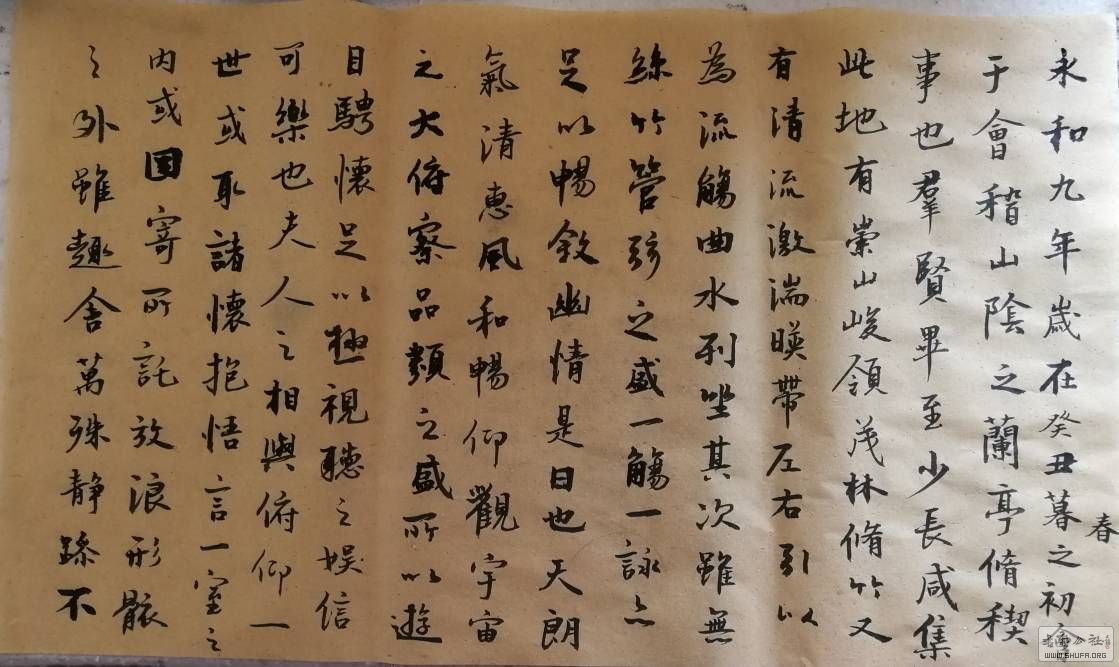 春
永和九年歲在癸丑暮之初會
于會稽山陰之蘭亭脩稧
事也羣賢畢至少長咸集
此地有崇山峻領茂林脩竹又
有清流激湍暎帶左右引以
為流觴曲水列坐其次雖無
絲竹管弦之盛一觴一詠亦
足以暢敘幽情是日也天朗
氣清惠風和暢仰觀宇宙
之大俯察品類之盛所以遊
目騁懷足以極視聽之娛信
可樂也夫人之相與俯仰一
世或取諸懷抱悟言一室之
內或因寄所託放浪形骸
之外雖趣舍萬殊靜躁不
WWW.SHUFA.ORG